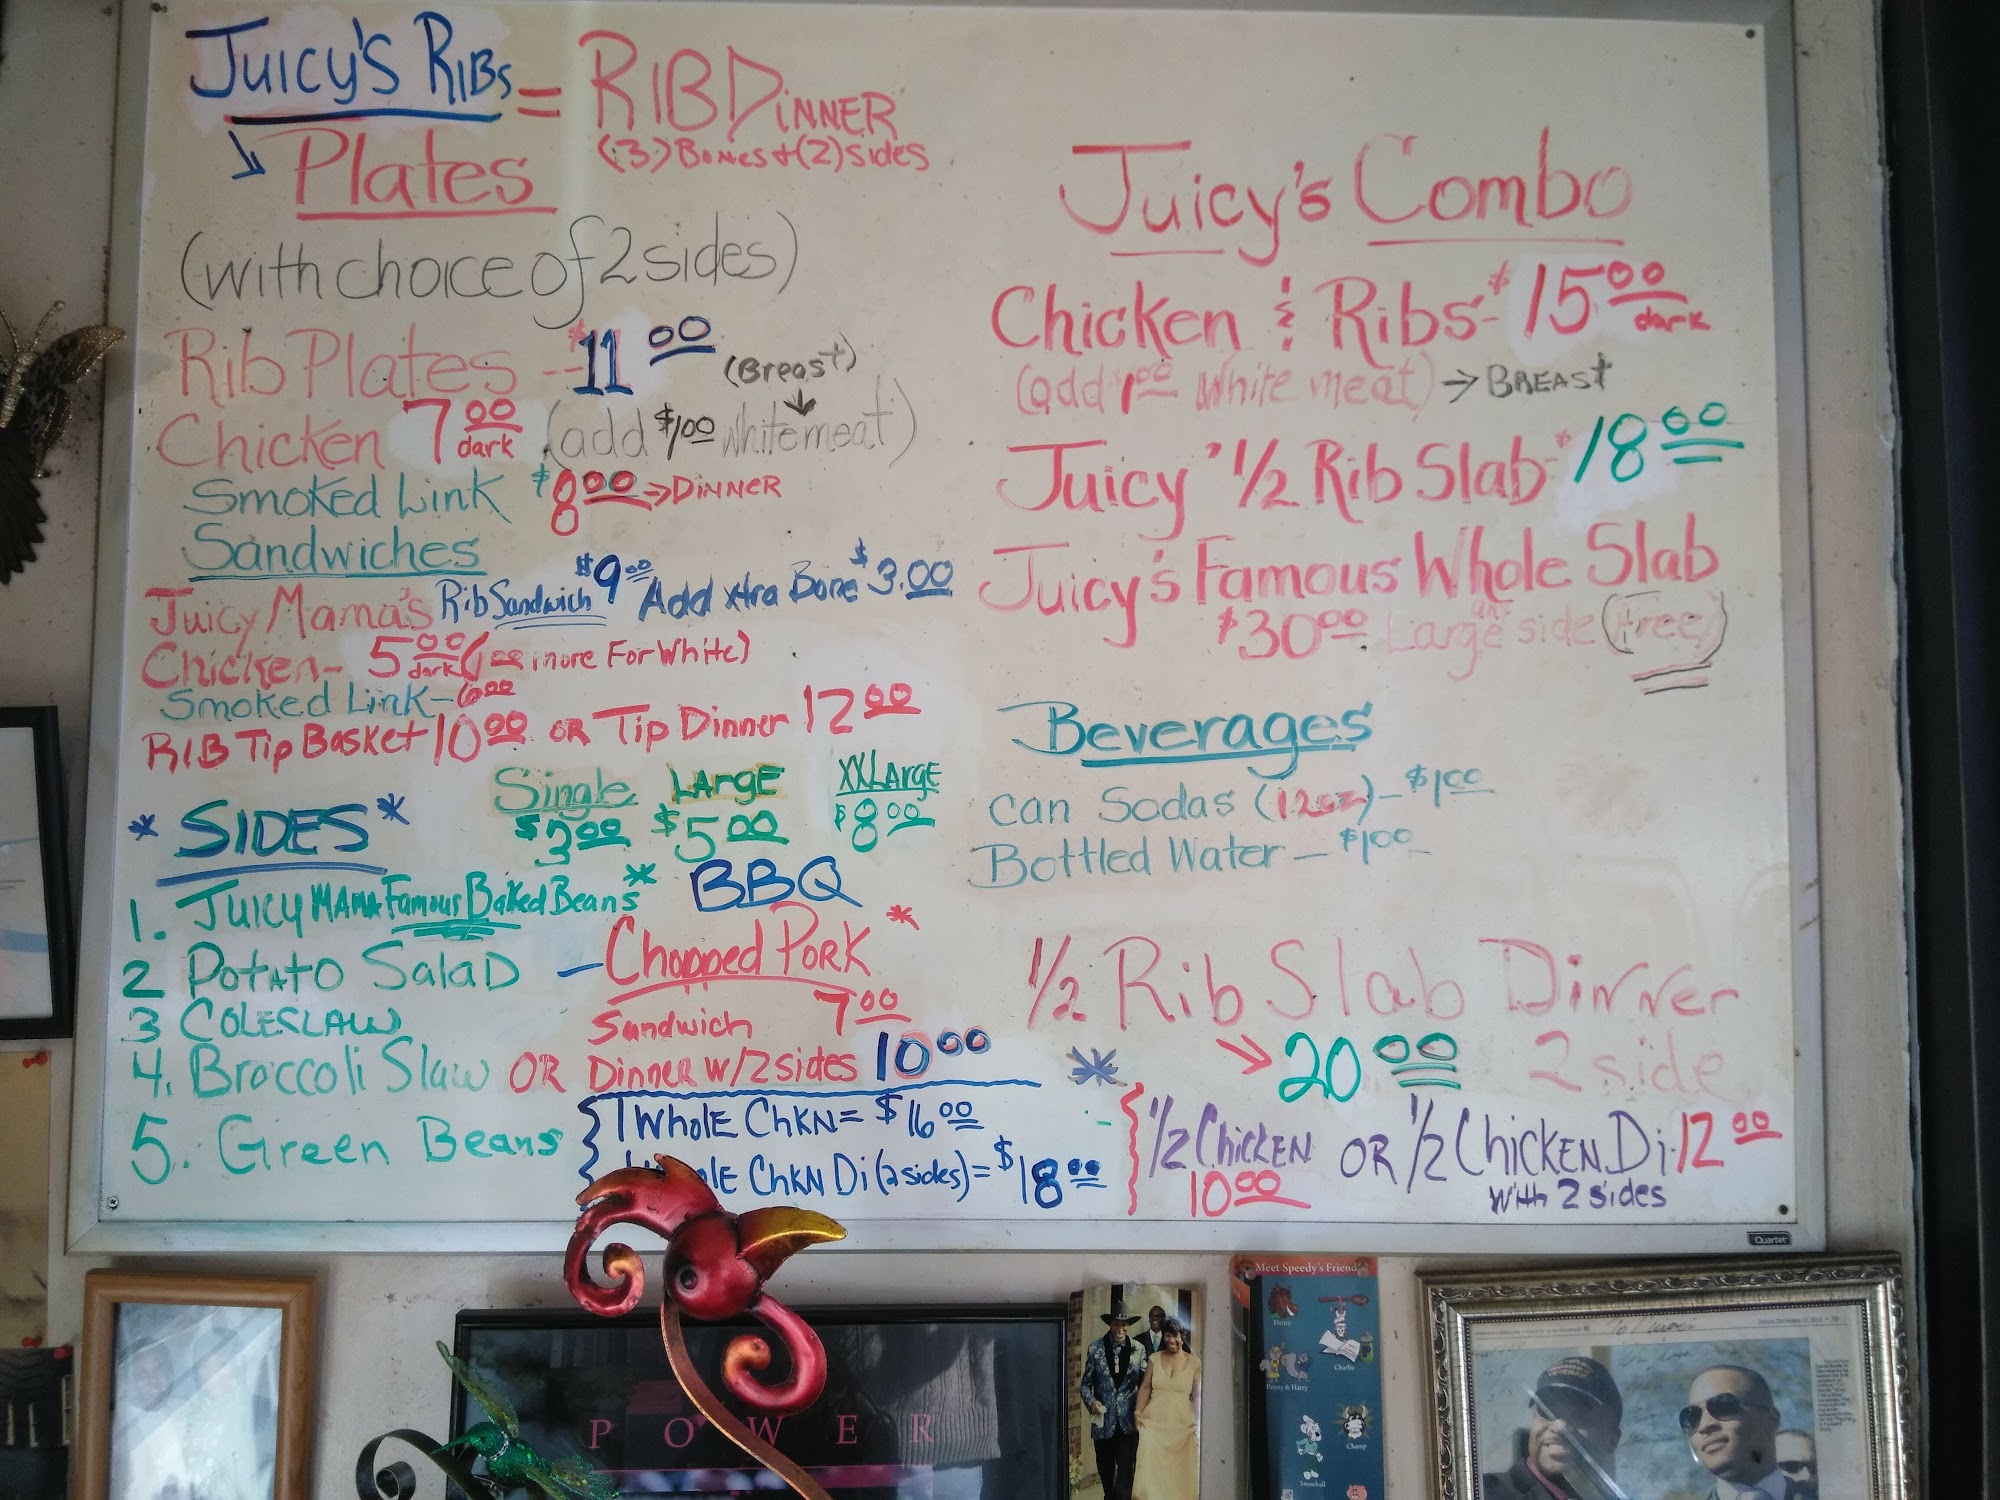 Juicy's Ribs = RIB Dinner
(3) Bones + (2) sides
Plates
(with choice of 2 sides)
Rib Plates -- $11.00
Chicken 7.00 dark (add $1.00 white meat) (Breast)
Smoked Link $8.00 → Dinner
Sandwiches
Juicy Mama's Rib Sandwich $9.00 Add xtra Bone $3.00
Chicken- 5.00 dark (1.00 more For White)
Smoked Link-6.00
RIB Tip Basket 10.00 OR Tip Dinner 12.00
* SIDES *
Single LArgE XXLArgE
$3.00 $5.00 $8.00
1. Juicy MAMA Famous Baked Beans *
2 Potato Salad
3 Coleslaw
4. Broccoli Slaw
5. Green Beans
BBQ
- Chopped Pork *
Sandwich 7.00
OR Dinner w/2 sides 10.00
1 Whole Chkn = $16.00
Chkn Di (2 sides) = $18.00
Juicy's Combo
Chicken & Ribs - $15.00 dark
(add 1.00 White meat) → BREASt
Juicy' 1/2 Rib Slab - $18.00
Juicy's Famous Whole Slab
$30.00 Large side (Free)
Beverages
Can Sodas (12oz) - $1.00
Bottled Water - $1.00
1/2 Rib Slab Dinner
→ 20.00 2 side
*
1/2 Chicken OR 1/2 Chicken Di - 12.00
10.00 with 2 sides
Quartet
POWER
Meet Speedy's Friend
Henry
Charlie
Penny & Harry
Champ
Snowball